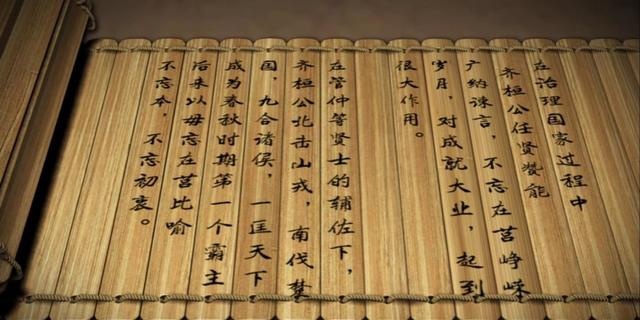 在治理国家过程中
齐桓公任贤举能
广纳谏言，不忘在莒峥嵘
岁月，对成就大业，起到
很大作用。
在管仲等贤士的辅佐下，
齐桓公北击山戎，南伐楚
国，九合诸侯，一匡天下
成为春秋时期第一个霸主
后来以毋忘在莒比喻
不忘本，不忘初衷。